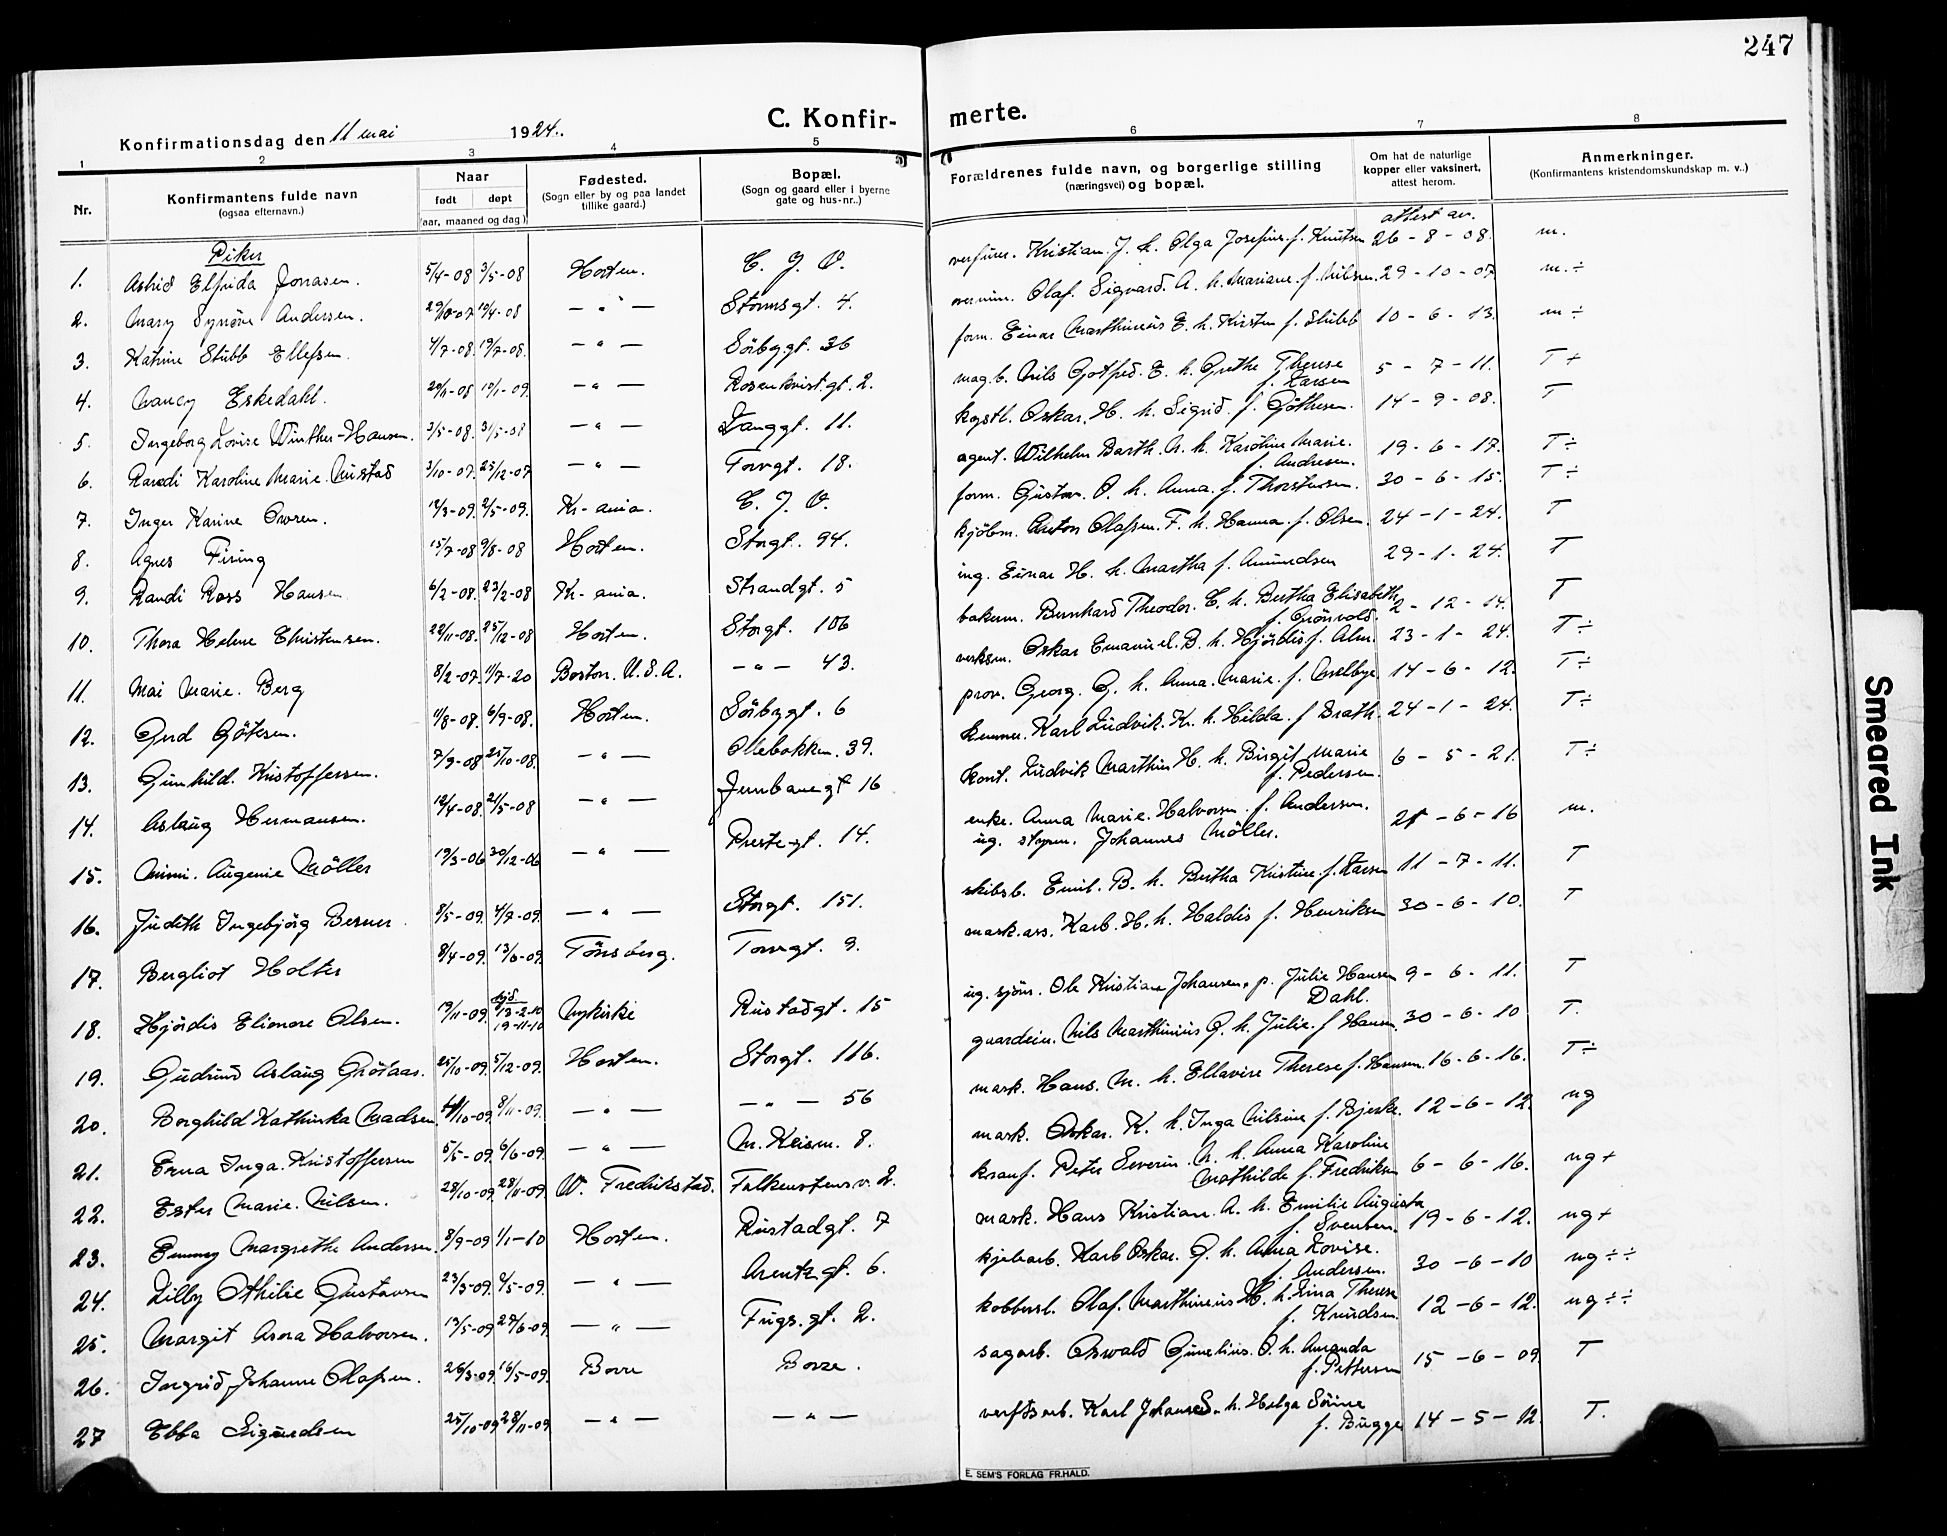 247
Konfirmationsdag den 11 mai 1924.
C. Konfirmerte.
1 2 3 4 5 6 7 8
Nr.
Konfirmantens fulde navn
(ogsaa efternavn.)
Naar
født døpt
(aar, maaned og dag.)
Fødested.
(Sogn eller by og paa landet
tillike gaard.)
Bopæl.
(Sogn og gaard eller i byerne
gate og hus-nr..)
Forældrenes fulde navn, og borgerlige stilling
(næringsvei) og bopæl.
Om hat de naturlige
kopper eller vaksinert,
attest herom.
Anmerkninger.
(Konfirmantens kristendomskundskap m. v..)
Piker
attest av.
1. Astrid Elfrida Jonasen. 5/4-08 3/5-08 Horten. C. J. V. Kristian J. h. Olga Josefine f. Knutsen 26-8-08. m.
2. Mary Synöve Andersen. 29/10-07 19/4-08 -"- Stormsgt. 4. Olaf Sigvard A. h. Mariane f. Nilsen. 29-10-07 m.÷
3. Katrine Stubb Ellefsen. 4/7-08 19/7-08. -"- Sörbygt. 36 form. Einar Marthinius E. h. Kirsten f. Stubb 10-6-13. m÷
4. Nancy Eskedahl. 20/11-08 10/1-09 -"- Rosenkvistgt. 2. mag.b. Nils Gotfred E. h. Grethe Therese
f. Larsen 5-7-11. T+
5. Ingeborg Lovise Winther-Hansen. 3/5-08. 31/5-08 -"- Langgt. 11. Oskar H. h. Sigrid f. Göthesen. 14-9-08. T
6. Randi Karoline Marie Nustad 3/10-07. 25/12-07 -"- Torvgt. 18. agent. Wilhelm Barth. N. h. Karoline Marie.
f. Andresen. 19-6-17. T÷
7. Inger Karine Owren. 12/3-09. 2/5-09. Kr-ania. C. J. V. form. Gustav O. h. Anna f. Thorstensen. 30-6-15. T÷
8. Agnes Firing 15/7-08 9/8-08 Horten. Storgt. 94. kjöbm. Anton Olafsen F. h. Hanna f. Olsen 24-1-24. T
9. Randi Ross Hansen 6/2-08. 23/2-08 Kr-ania. Strandgt. 5 ing. Einar H. h. Martha f. Amundsen 29-1-24. T
10. Thora Helene Christensen. 22/11-08. 25/12-08 Horten. Storgt. 106 bakerm. Bernhard Theodor C. h. Bertha Elisabeth
f. Grönvold. 2-12-14. T
11. Mai Marie Berg 8/2-07. 11/7-20 Boston. U.S.A. -"- 43. verksm. Oskar Emanuel B. h. Hjördis f. Alm. 23-1-24. T÷
12. Gerd Götesen. 11/8-08. 6/9-08. Horten. Sörbygt. 6 prov. Georg G. h. Anna Marie f. Melbye 14-6-12. T÷
13. Gunhild Kristoffersen. 7/9-08 25/10-08. -"- Ollebakken. 39. kemner. Karl Ludvik K. h. Hilda f. Brath. 24-1-24. T÷
14. Aslaug Hermansen. 12/4-08. 21/5-08 -"- Jernbanegt 16 kont. Ludvik Marthin H. h. Birgit Marie
f. Pedersen. 6-5-21. T÷
15. Mimi Augenie Möller 19/3-06 30/12-06 -"- Prestegt. 14. enke. Anna Marie Halvorsen f. Andersen.
ug. styrm. Johannes Möller. 21-6-16 m.
16. Judith Ingebjörg Berner. 8/5-09. 4/7-09. -"- Storgt. 151. skibsb. Emil B. h. Bertha Kristine f. Larsen 11-7-11. T
17. Bergliot Holter 8/4-09. 13/6-09. Tönsberg. Torvgt. 9. mask.ass. Karl H. h. Haldis f. Henriksen 30-6-10. T
18. Hjördis Elionore Olsen. 19/11-09. 13-2-10
19-11-10 Nykirke Rustadgt. 15 ug. sjöm. Ole Kristian Johansen, p. Julie Hansen
Dahl. 9-6-11. T
19. Gudrund Aslaug Grötaas. 25/10-09. 5/12-09. Horten. Storgt. 116. guardein. Nils Marthinius G. h. Julie f. Hansen. 30-6-10 T.
20. Borghild Kathinka Madsen. /10-09. 8/11-09. -"- -"- 56 mask. Hans M. h. Ellavine Therese f. Hansen. 16-6-16. T÷
21. Erna Inga Kristoffersen 5/5-09. 6/6-09. -"- N. Keisem. 8. mask. Oskar K. h. Inga Nilsine f. Bjerke. 12-6-12. ng
22. Ester Marie Nilsen. 28/10-09. 28/11-09 W. Fredrikstad. Falkenstensv. 2. kranf. Peter Severin N. h. Anna Karoline
Mathilde f. Fredriksen 6-6-16. ng+
23. Emmy Margrethe Andersen. 8/9-09 1/1-10 Horten. Rustadgt. 7 mask. Hans Kristian A. h. Emilie Augusta
f. Svendsen. 19-6-12. ng+
24. Lilly Othilie Gustavsen 23/3-09. 9/5-09. -"- Arentzgt. 6. kjelearb. Karl Oskar G. h. Anna Lovise.
f. Andersen. 30-6-10 ng÷÷
25. Margit Asora Halvorsen. 19/5-09 27/6-09. -"- Fugs.gt. 2. kobbersl. Olaf Marthinius H. h. Lina Therese
f. Knudsen. 12-6-12. ng÷÷
26. Ingrid Johanne Olafsen. 26/3-09. 16/5-09. Borre Borre. sagarb. Oswald Gunelius O. h. Amanda
f. Pettersen 15-6-09. T
27 Ebba Sigurdsen 25/10-09 28/11-09 -"- -"- verftsarb. Karl Johan S. h. Helga Sörine
f. Bugge 14-5-12. T.
E. SEM'S FORLAG FR.HALD.
Smeared Ink